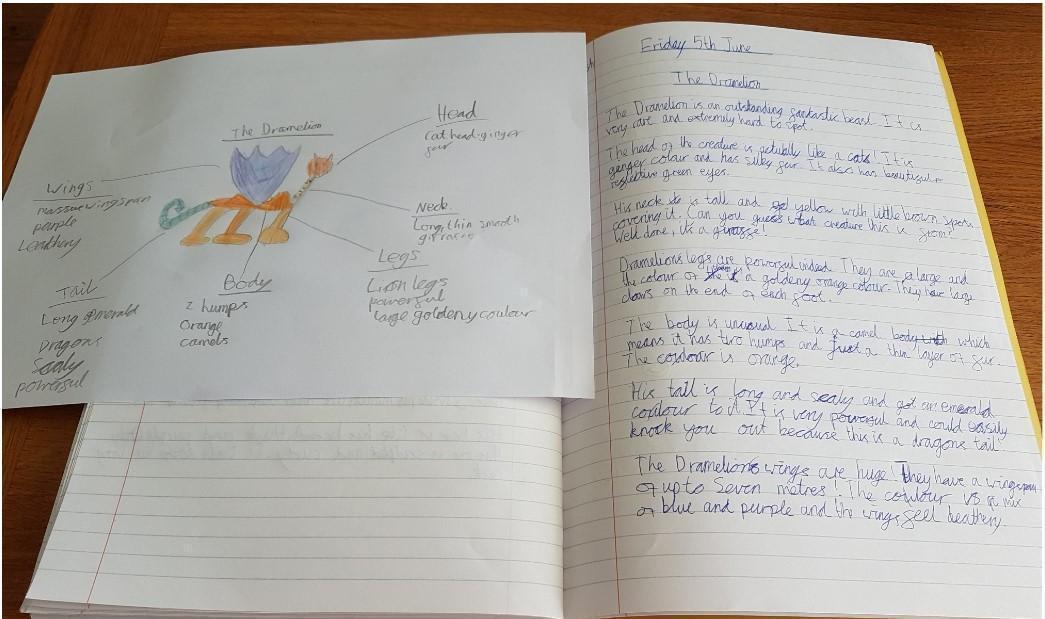 The Dramelion
Head
Cat head-ginger
fur
Wings
massive wingspan
purple
Leathery
Neck
Long, thin smooth
giraffe
Legs
Lion legs
powerful
large goldeny coulour
Body
2 humps
Orange
camels
Tail
Long emerald
Dragons
Scaly
powerful
Friday 5th June
The Dramelion
The Dramelion is an outstanding fantastic beast. It is
very rare and extremely hard to spot.
The head of the creature is actually like a cats! It is
ginger colour and has silky fur. It also has beautiful
reflective green eyes.
His neck is tall and yellow with little brown spots
covering it. Can you guess what creature this is from?
Well done, its a giraffe!
Dramelions legs are powerful indeed. They are a large and
the colour of a goldeny orange colour. They have large
claws on the end of each foot.
The body is unusual It is a camel body which
means it has two humps and just a thin layer of fur.
The coulour is orange.
His tail is long and scaly and got an emerald
coulour to it. It is very powerful and could easily
knock you out because this is a dragons tail
The Dramelions wings are huge! They have a wingspan
of up to Seven metres! The coulour is a mix
of blue and purple and the wings feel leathery.